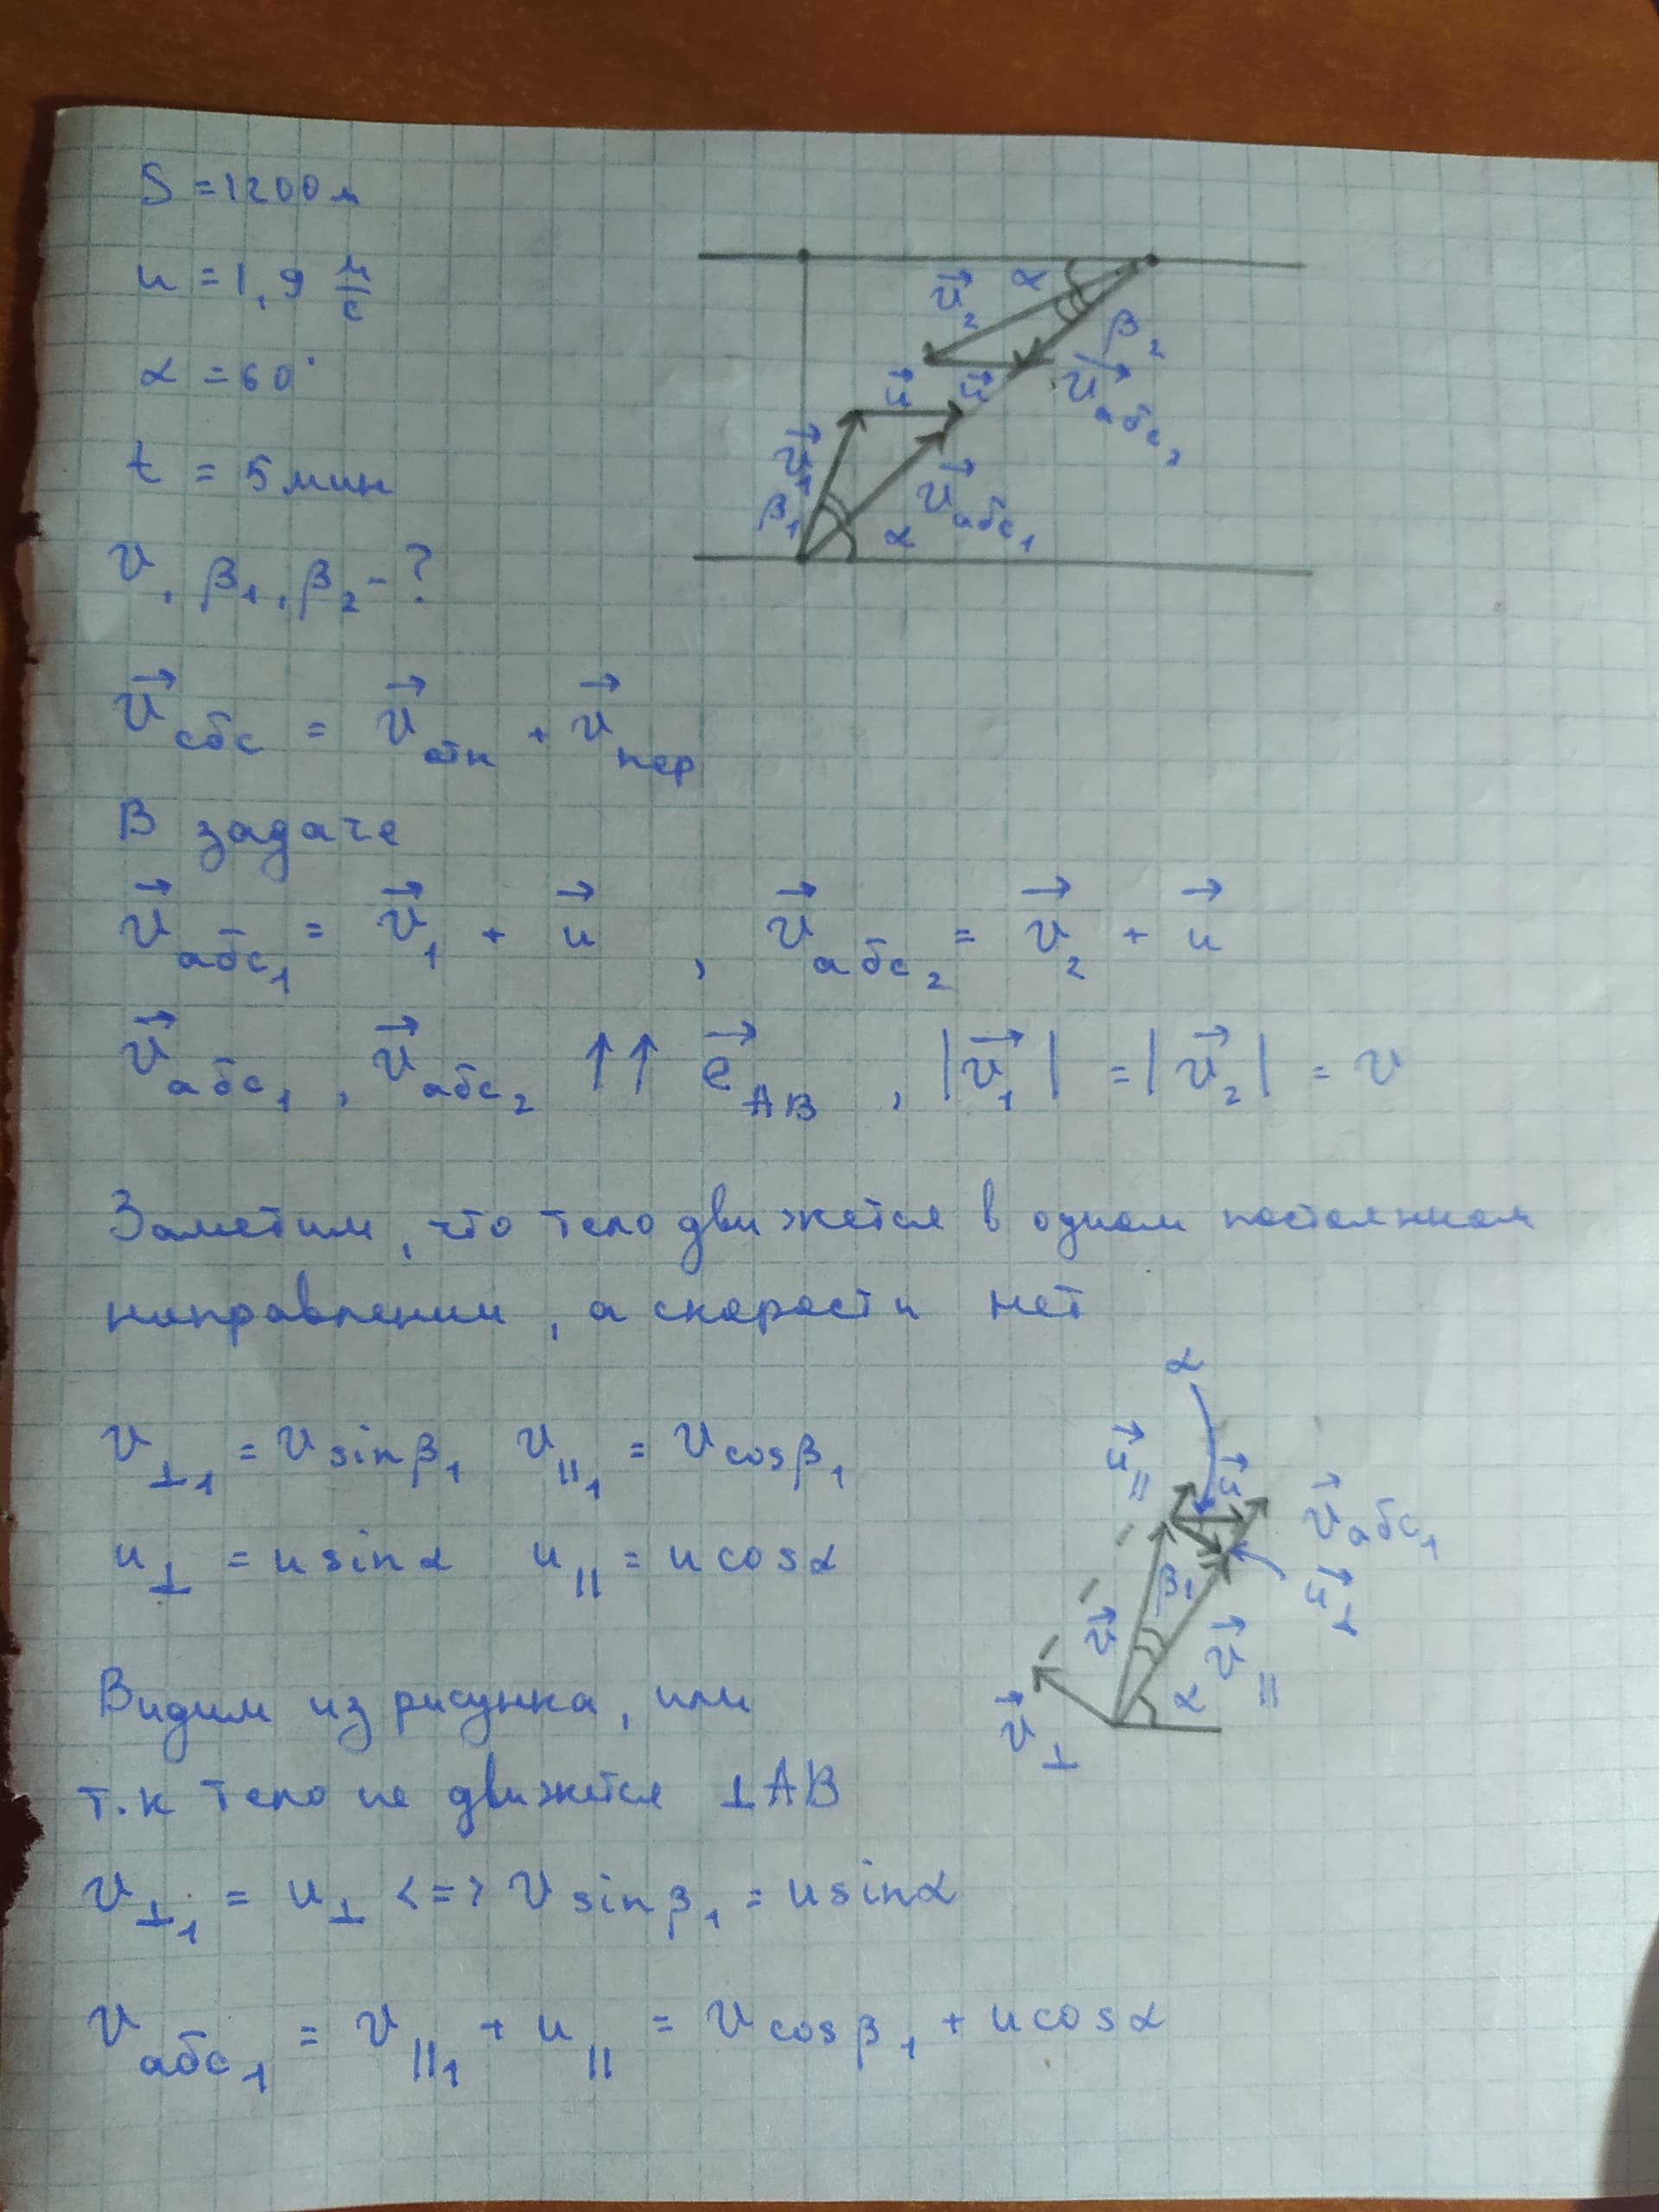 S = 1200 м
u = 1,9 м/с
α = 60°
t = 5 мин
v, β₁, β₂ - ?
α
v⃗₂
β₂
u⃗
u⃗
v⃗абс₂
v⃗₁
β₁
v⃗абс₁
α
v⃗абс = v⃗отн + v⃗пер
В задаче
v⃗абс₁ = v⃗₁ + u⃗ , v⃗абс₂ = v⃗₂ + u⃗
v⃗абс₁ , v⃗абс₂ ↑↑ e⃗AB , |v⃗₁| = |v⃗₂| = v
Заметим, что тело движется в одном постоянном
направлении, а скорости нет
v⊥₁ = v sinβ₁ v||₁ = v cosβ₁
u⊥ = u sinα u|| = u cosα
α
u⃗||
u⃗
v⃗абс₁
β₁
u⃗⊥
v⃗
v⃗||
α
v⃗⊥
Видим из рисунка, или
т.к тело не движется ⊥AB
v⊥₁ = u⊥ <=> v sinβ₁ = u sinα
vабс₁ = v||₁ + u|| = v cosβ₁ + u cosα